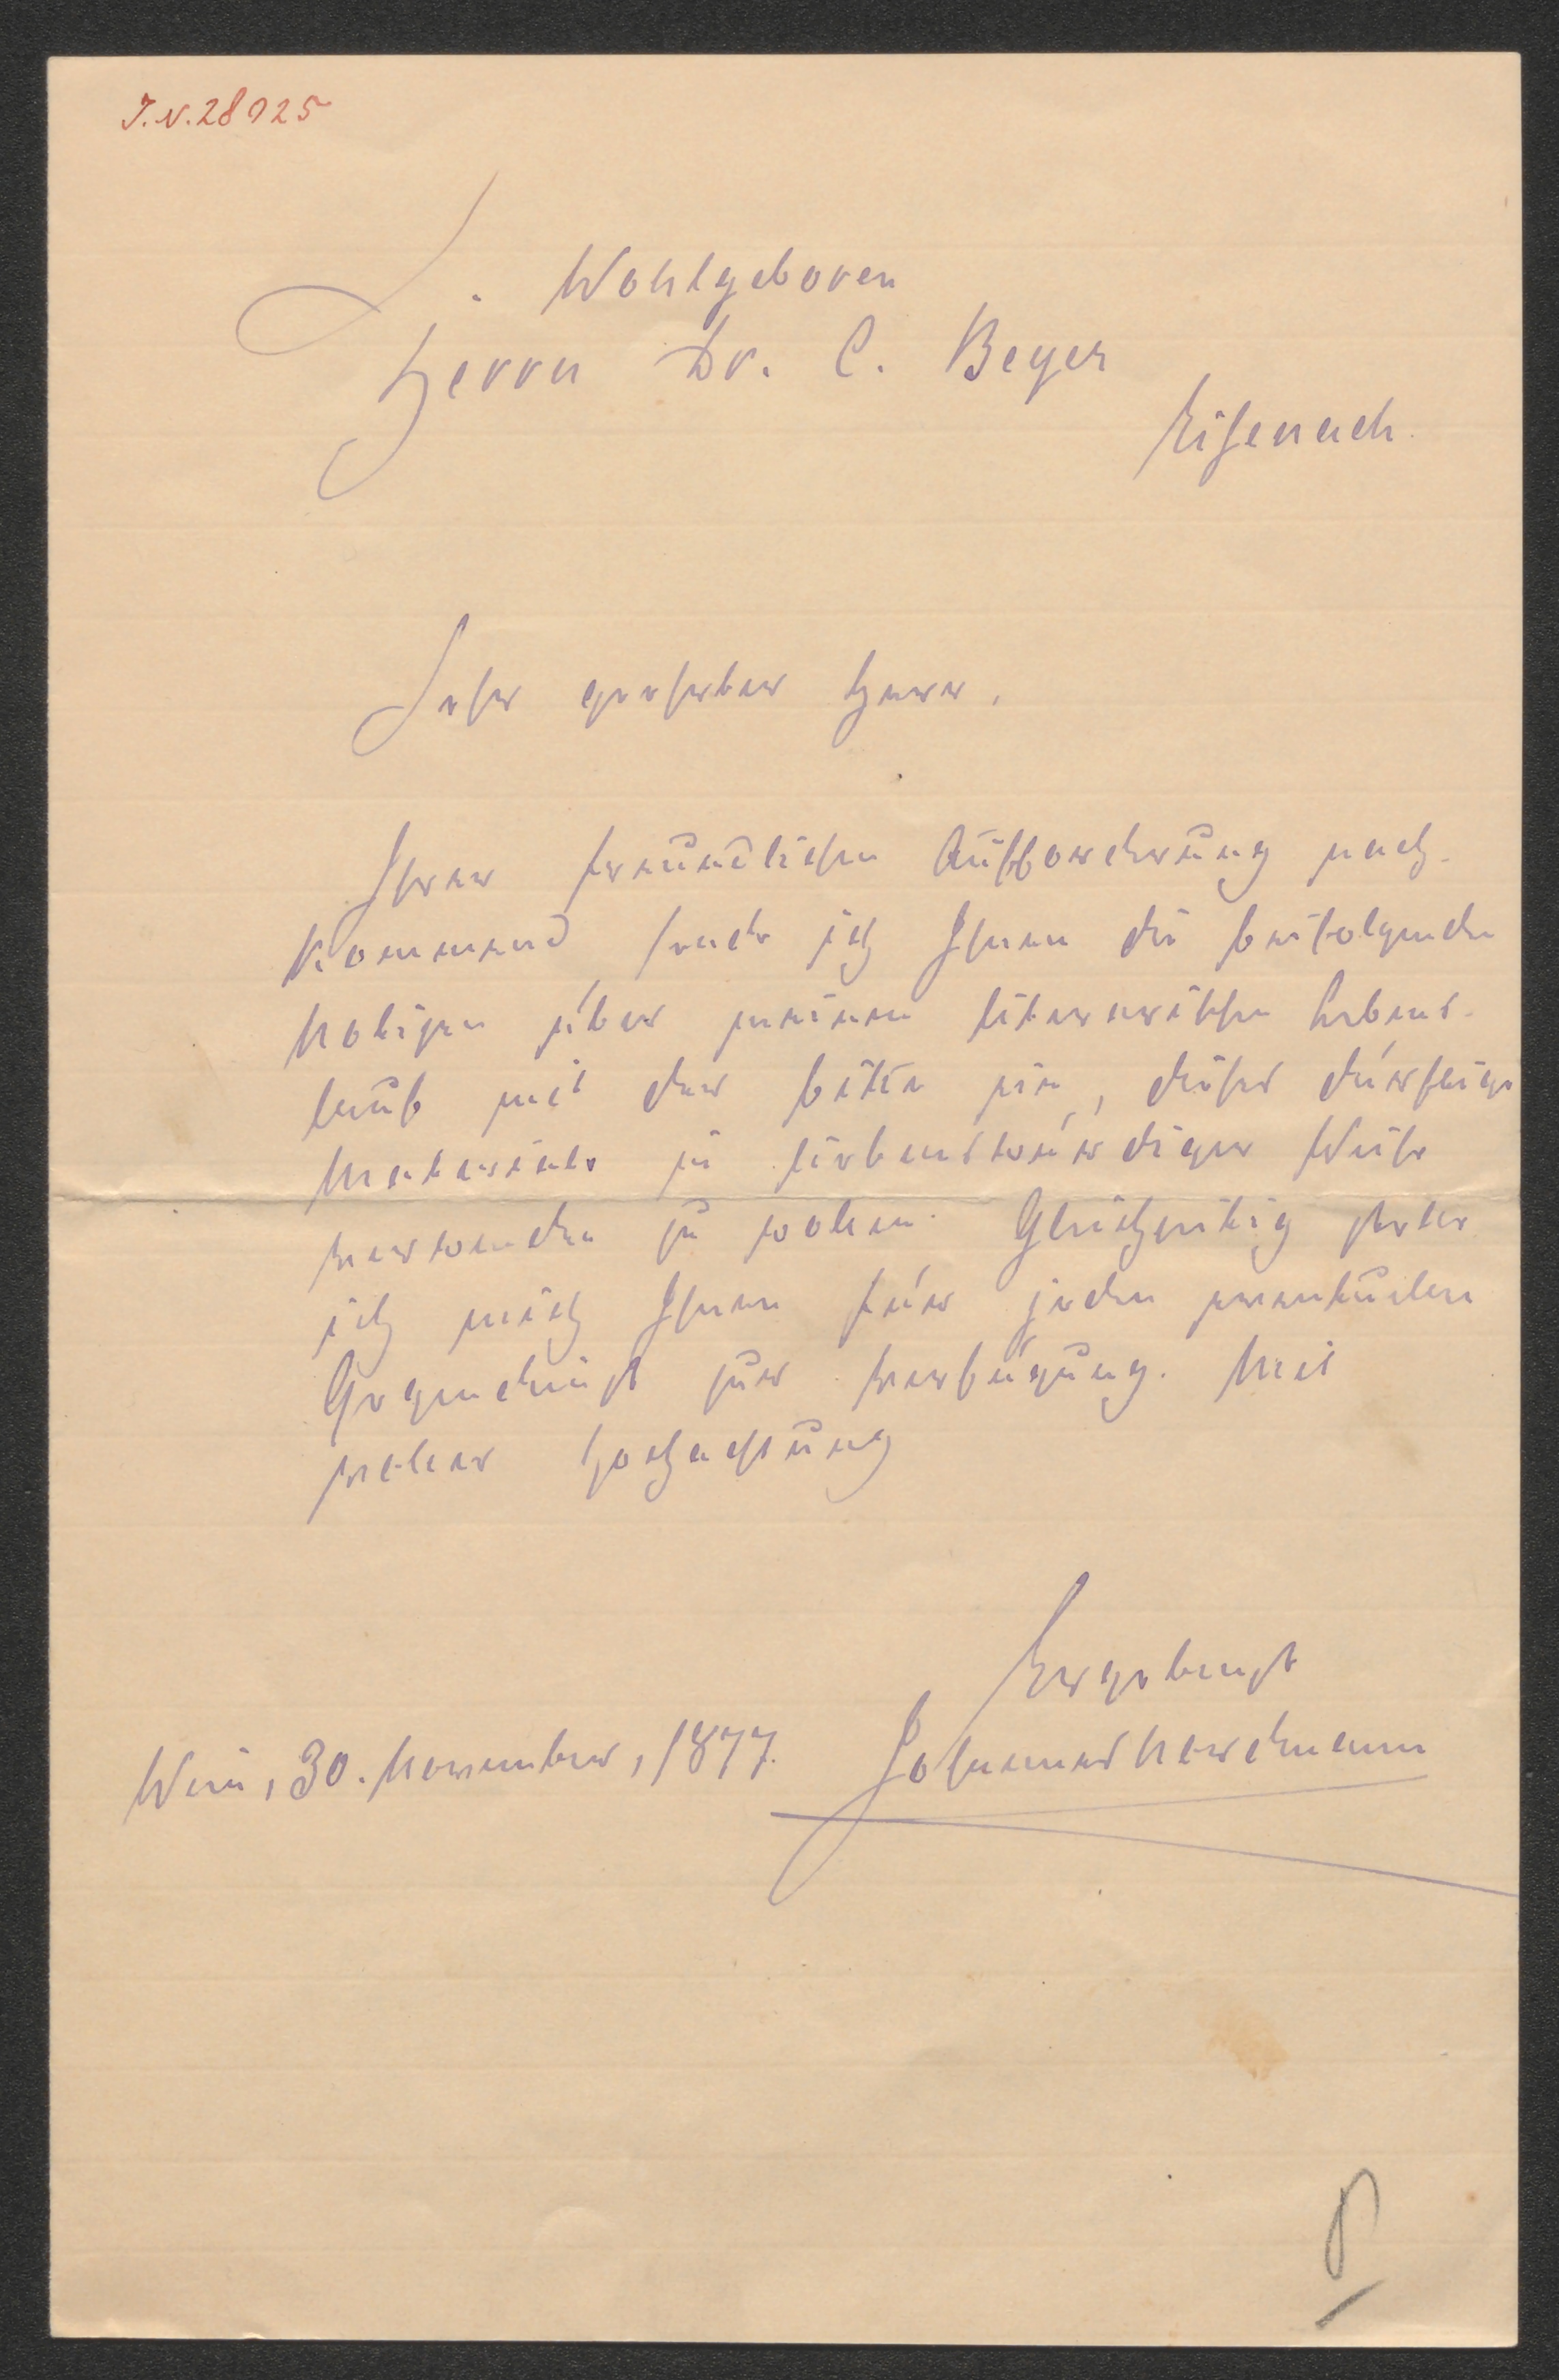 J.N. 28025
S. Wohlgeboren
Herrn Dr. C. Beyer
Eisenach.
Sehr geehrter Herr.
Ihrer freundlichen Aufforderung nach-
kommend, sende ich Ihnen die beifolgenden
Notizen über meinen literarischen Lebens-
lauf mit der Bitte ein, dieses dürftige
Materiale in liebenswürdiger Weise
verwenden zu wollen. Gleichzeitig stelle
ich mich Ihnen für jeden eventuellen
Gegendienst zur Verfügung. Mit
voller Hochachtung
Ergebenst
Johannes Nordmann
Wien, 30. November, 1877.